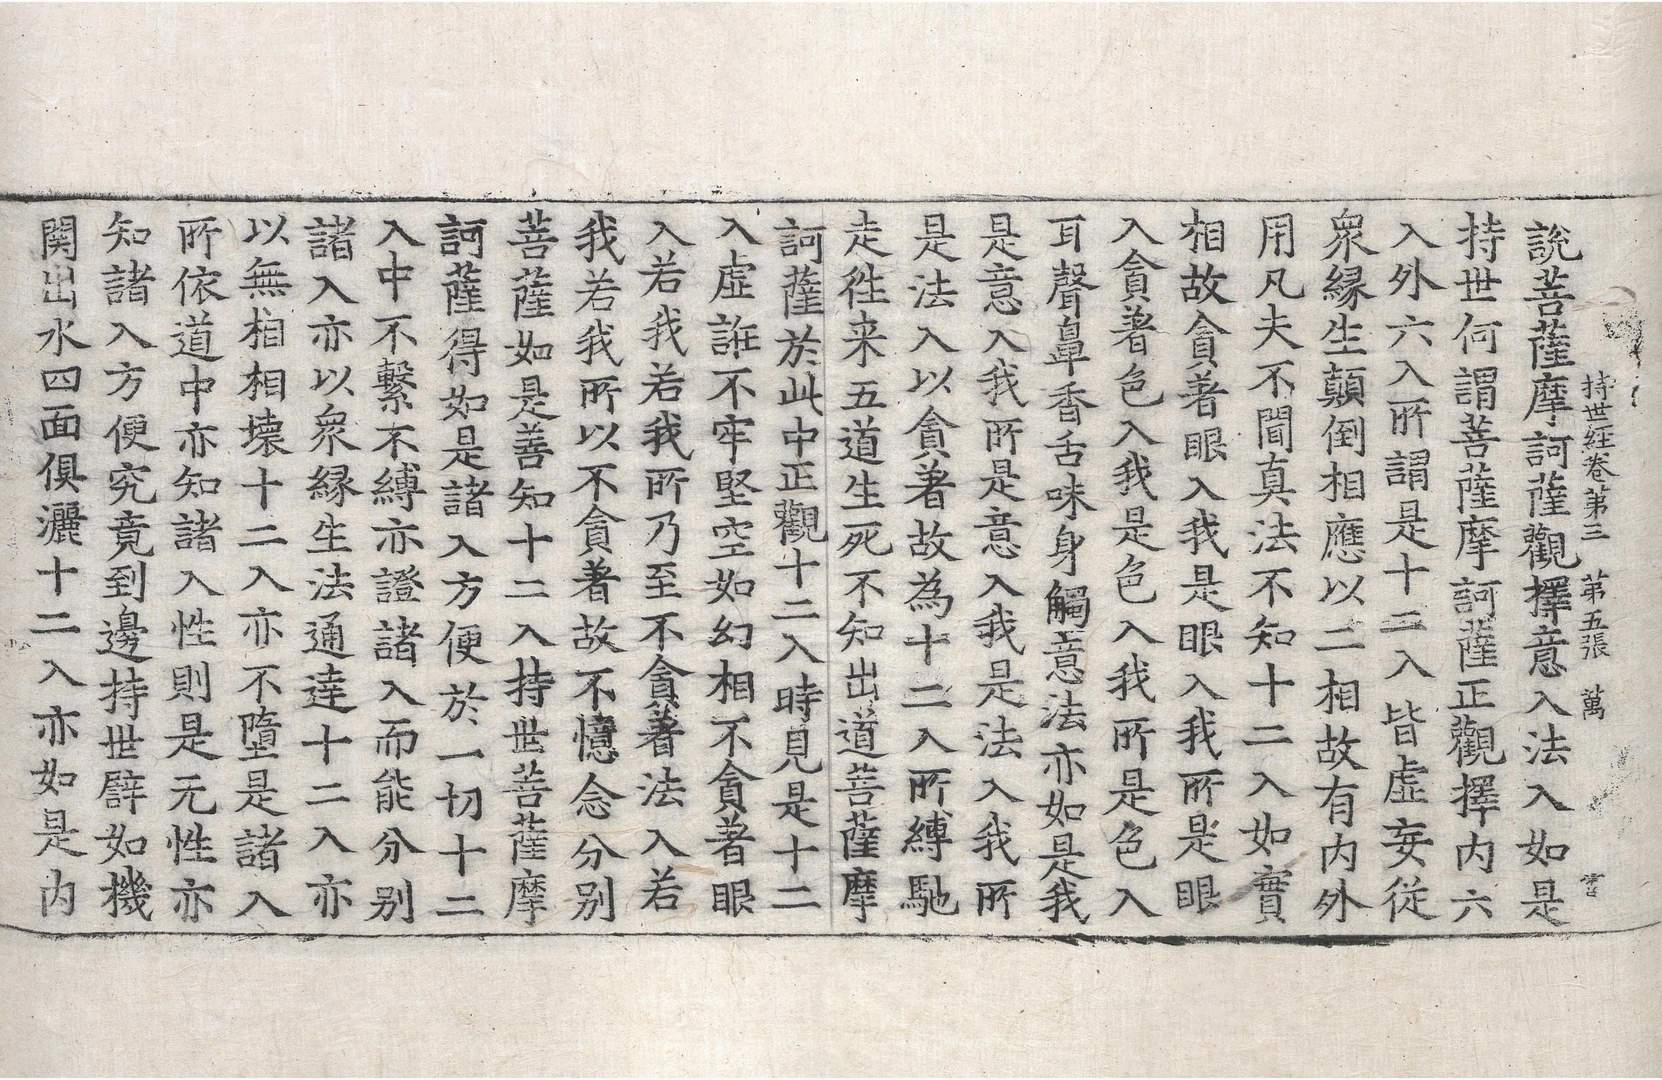 持世経卷第三 第五張 萬
說菩薩摩訶薩觀擇意入法入如是
持世何謂菩薩摩訶薩正觀擇内六
入外六入所謂是十二入皆虛妄從
眾縁生顛倒相應以二相故有内外
用凡夫不聞真法不知十二入如實
相故貪著眼入我是眼入我所是眼
入貪著色入我是色入我所是色入
耳聲鼻香舌味身觸意法亦如是我
是意入我所是意入我是法入我所
是法入以貪著故為十二入所縛馳
走徃来五道生死不知出道菩薩摩
訶薩於此中正觀十二入時見是十二
入虛誑不牢堅空如幻相不貪著眼
入若我若我所乃至不貪著法入若
我若我所以不貪著故不憶念分别
菩薩如是善知十二入持世菩薩摩
訶薩得如是諸入方便於一切十二
入中不繫不縛亦證諸入而能分别
諸入亦以眾縁生法通達十二入亦
以無相相壞十二入亦不墮是諸入
所依道中亦知諸入性則是无性亦
知諸入方便究竟到邊持世譬如機
関出水四面俱灑十二入亦如是内